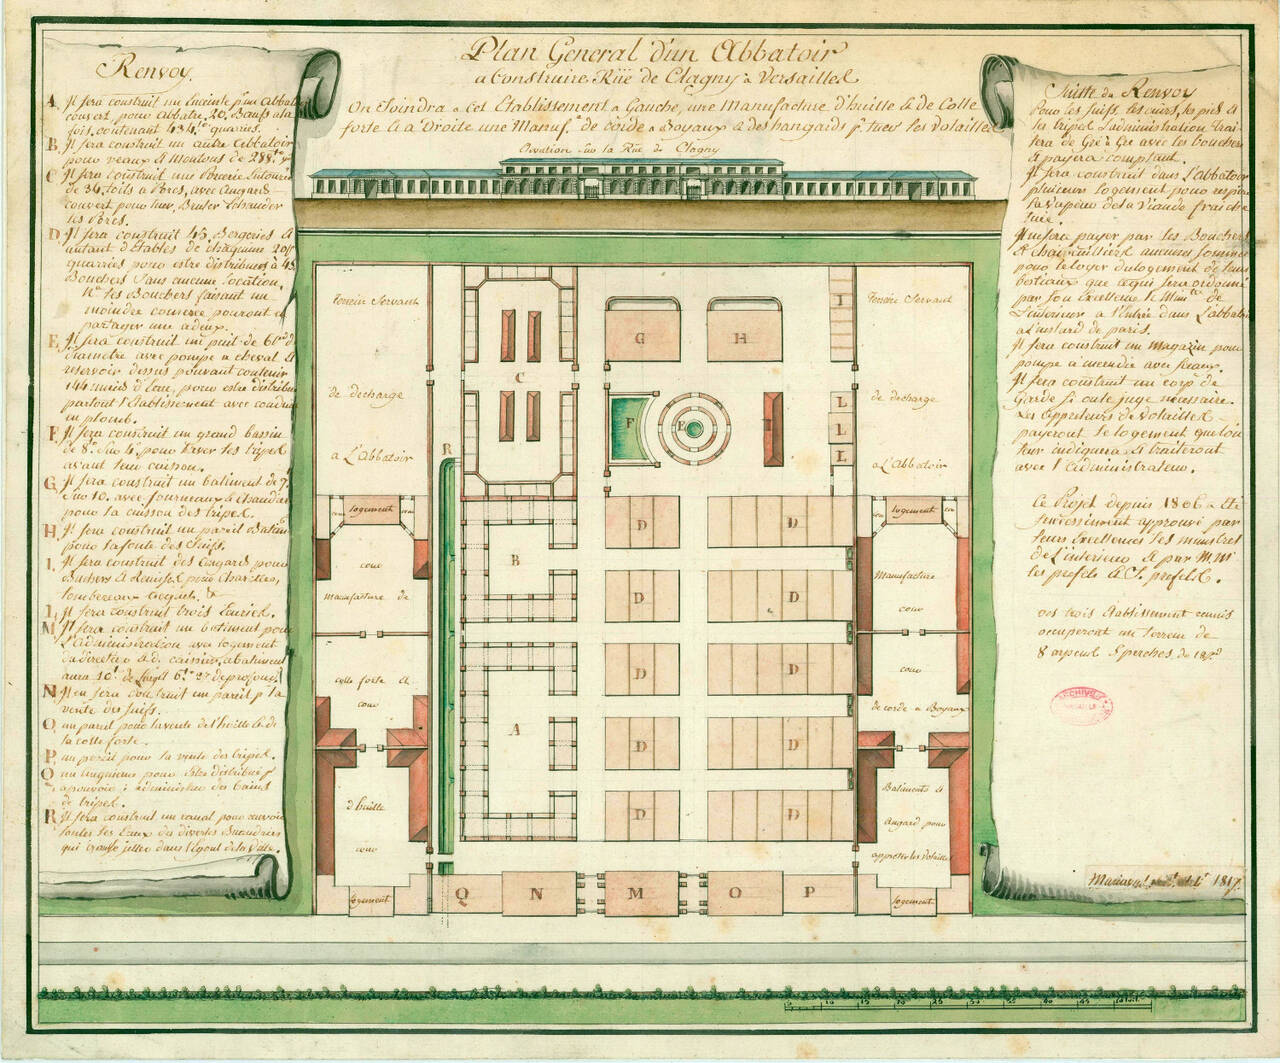 Plan General d'un Abbatoir
a Construire Rüe de Clagny a Versailles
On Joindra a Cet Etablissement a Gauche, une Manufacture d'huille & de Colle
forte & a Droite une Manuf.e de Corde a Boyaux & des hangards p.r tuer les Volailles
Elevation sur la Rue de Clagny
Renvoy.
A. Il sera construit un Enceinte d'un Abbat
couvert, pour Abbatre 20 Bœufs a la
fois, contenant 434 t.e quarries.
B. Il sera construit un autre Abbatoir
pour veaux & Moutons de 288
C. Il sera construit une Porcerie Entourée
de 36 toits a Porcs, avec Angard
couvert pour tuer, Bruler Echauder
les Porcs.
D. Il sera construit 45 Bergeries &
autant d'Etables de chaqune
quarries pour estre distribués à 45
Bouchers Sans aucune location,
les Bouchers faisant un
moindre comerce pouront
partager une a deux.
E. Il sera construit un puit de
diametre avec pompe a cheval &
reservoir dessus pouvant contenir
144 muids d'Eau, pour estre distribu
partout l'Etablissement avec conduit
en plomb.
F. Il sera construit un grand bassin
de 8 sur 4 pour laver les tripes
avant leur cuisson.
G. Il sera construit un batiment de 7
sur 10. avec fourneaux & chaudier
pour la cuisson des tripes.
H. Il sera construit un pareil Batim
pour la fonte des Suifs.
I. Il sera construit des Angards pour
Buchers & Remises pour charettes,
tombereaux
L. Il sera construit trois Ecuries.
M. Il sera construit un batiment pour
L'Administration avec logement
du directeur & d. caissier, a batiment
aura 10 de
N. Il en sera construit un pareil p.r la
vente des Suifs.
O. un pareil pour la vente de l'huille & de
la colle forte.
P. un pareil pour la vente des tripes.
Q. un
de tripes.
R. Il sera construit un canal pour recevoir
toutes les Eaux des diverses
qui dans l'Egout de la Ville.
Suitte du Renvoy
Pour les Suifs, les cuirs, les pieds &
les tripes L'administration trai
tera de Gré a Gré avec les bouchers
& payera comptant.
Il sera construit dans L'abbatoir
plusieurs logement pour
la vapeur de la Viande fraiche
tuée.
Il ne sera payer par les Bouchers
& chaircuittiers aucunes sommes
pour le loyer du logement de leurs
bestiaux que ce qui sera ordonné
par Son Excellence le Min.tre de
L'interieur a l'Entrée dans L'abbatoir
a L'instard de paris.
Il sera construit un Magazin pour
pompe a incendie avec seaux.
Il sera construit un corp de
Garde si on le juge nécessaire.
Les Apporteurs de Volailles
payeront le logement qu'on
leur indiquera & traiteront
avec l'Administrateur.
Ce Projet depuis 1806 a Eté
successivement approuvé par
leurs Excellences les ministres
de L'interieur & par M.M
les prefets & S. prefets.
Les trois Etablissement reunis
occuperont un terrein de
8 arpens 5 perches de
1817
Terrein Servant
de decharge
a L'Abbatoir
Terrein Servant
de decharge
a L'Abbatoir
C
G
H
I
F
E
I
L
L
L
R
logement
cour
cour
cour
manufacture de
colle forte &
cour
d'huille
cour
logement
B
A
D
D
D
D
D
D
D
D
D
D
logement
cour
cour
Manufacture
cour
cour
de corde a Boyaux
Batiments &
angard pour
apprester les Volailles
logement
Q
N
M
O
P
5
10
15
20
25
30
35
40
45
ARCHIVES